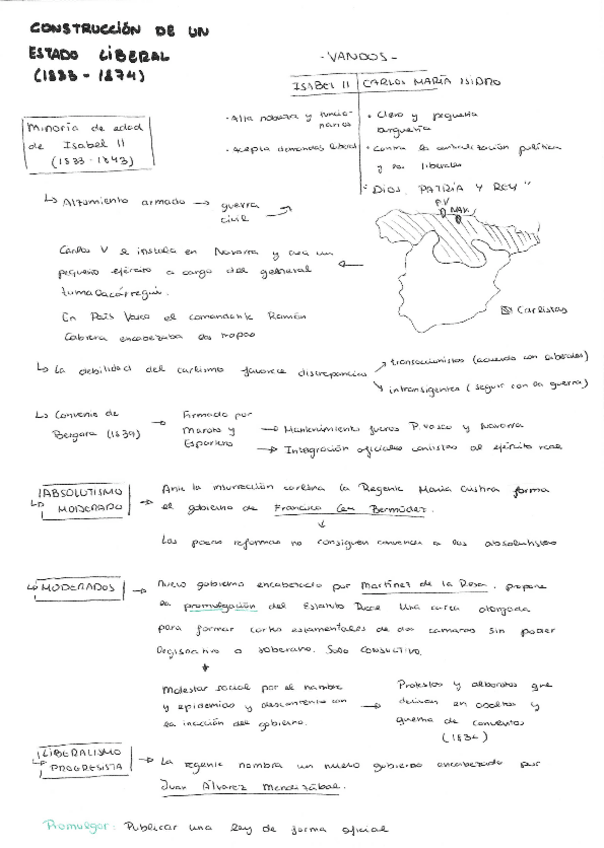 CONSTRUCCIÓN DE UN
ESTADO LIBERAL
(1833 - 1874)
- VANDOS -
ISABEL II | CARLOS MARÍA ISIDRO
· Alta nobleza y funcio-
narios
· Acepta demandas liberal
· Clero y pequeña
burguesía
· Contra la centralización política
y los liberales
· "DIOS, PATRIA Y REY"
Minoría de edad
de Isabel II
(1833 - 1843)
↳ Alzamiento armado → guerra
civil
P.V NAV.
Carlos V se instala en Navarra y crea un
pequeño ejército a cargo del general
Zumalacárregui.
En País Vasco el comandante Ramón
Cabrera encabezaba las tropas
Carlistas
↳ La debilidad del carlismo favorece discrepancias
transaccionistas (acuerdo con liberales)
intransigentes (seguir con la guerra)
↳ Convenio de
Bergara (1839)
→ Firmado por
Maroto y
Espartero
→ Mantenimiento fueros P. Vasco y Navarra
→ Integración oficiales carlistas al ejército real
ABSOLUTISMO
MODERADO
→ Ante la insurrección carlista la Regente María Cristina forma
el gobierno de Francisco Cea Bermúdez.
Las pocas reformas no consiguen convencer a los absolutistas
↳ MODERADOS → Nuevo gobierno encabezado por Martínez de la Rosa, propone
la promulgación del Estatuto Real. Una carta otorgada
para formar cortes estamentales de dos cámaras sin poder
legislativo o soberano. Solo CONSULTIVO.
Malestar social por el hambre
y epidemias y descontento con
la inacción del gobierno.
→ Protestas y alborotos que
derivan en asaltos y
quema de conventos
LIBERALISMO
PROGRESISTA
→ La regente nombra un nuevo gobierno encabezado por
Juan Álvarez Mendizábal.
Promulgar: Publicar una ley de forma oficial